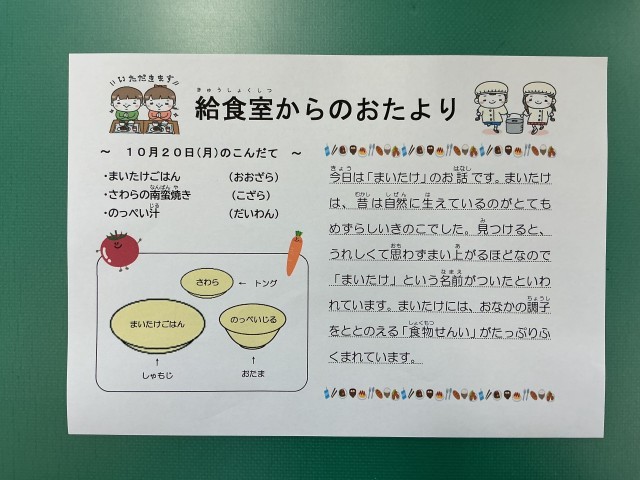 いただきます
給食室からのおたより
きゅうしょくしつ
～　１０月２０日(月)のこんだて　～
・まいたけごはん　（おおざら）
・さわらの南蛮焼き　（こざら）
なんばんや
・のっぺい汁　（だいわん）
じる
さわら　←　トング
まいたけごはん
のっぺいじる
↑
しゃもじ
↑
おたま
きょう　はなし
今日は「まいたけ」のお話です。まいたけ
むかし　しぜん　は
は、昔は自然に生えているのがとても
み
めずらしいきのこでした。見つけると、
おも　あ
うれしくて思わずまい上がるほどなので
なまえ
「まいたけ」という名前がついたといわ
ちょうし
れています。まいたけには、おなかの調子
しょくもつ
をととのえる「食物せんい」がたっぷりふ
くまれています。